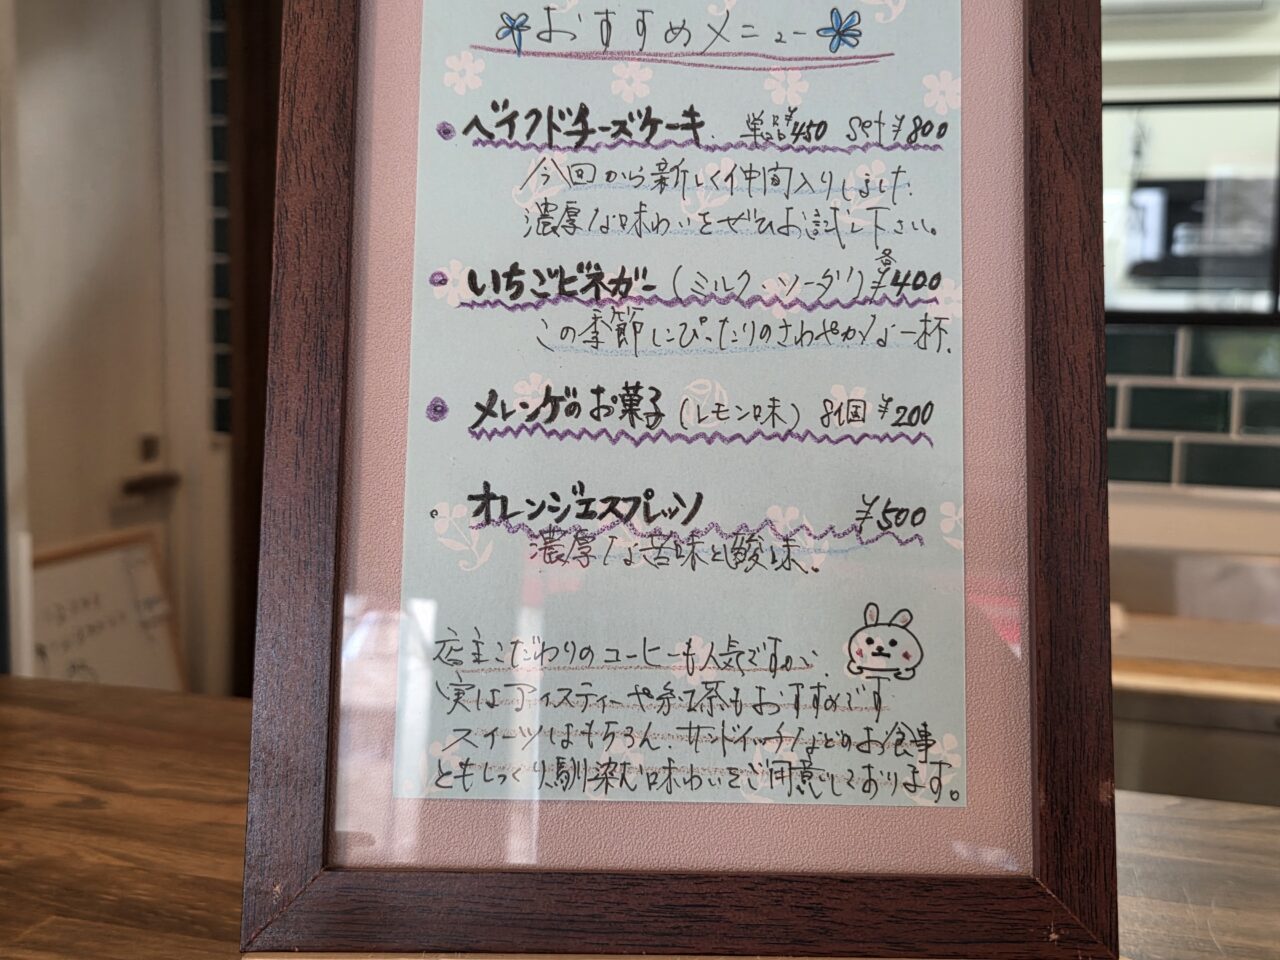 おすすめメニュー
ベイクドチーズケーキ 単品¥450 set¥800
今回から新しく仲間入りしました。
濃厚な味わいをぜひお試し下さい。
いちごビネガー(ミルク・ソーダ)各¥400
この季節にぴったりのさわやかな一杯。
メレンゲのお菓子(レモン味) 8個 ¥200
オレンジエスプレッソ ¥500
濃厚な苦味と酸味。
店主こだわりのコーヒーも人気ですが、
実はアイスティーや紅茶もおすすめです
スイーツはもちろん、サンドイッチなどのお食事
ともしっくり馴染む味わいをご用意しております。